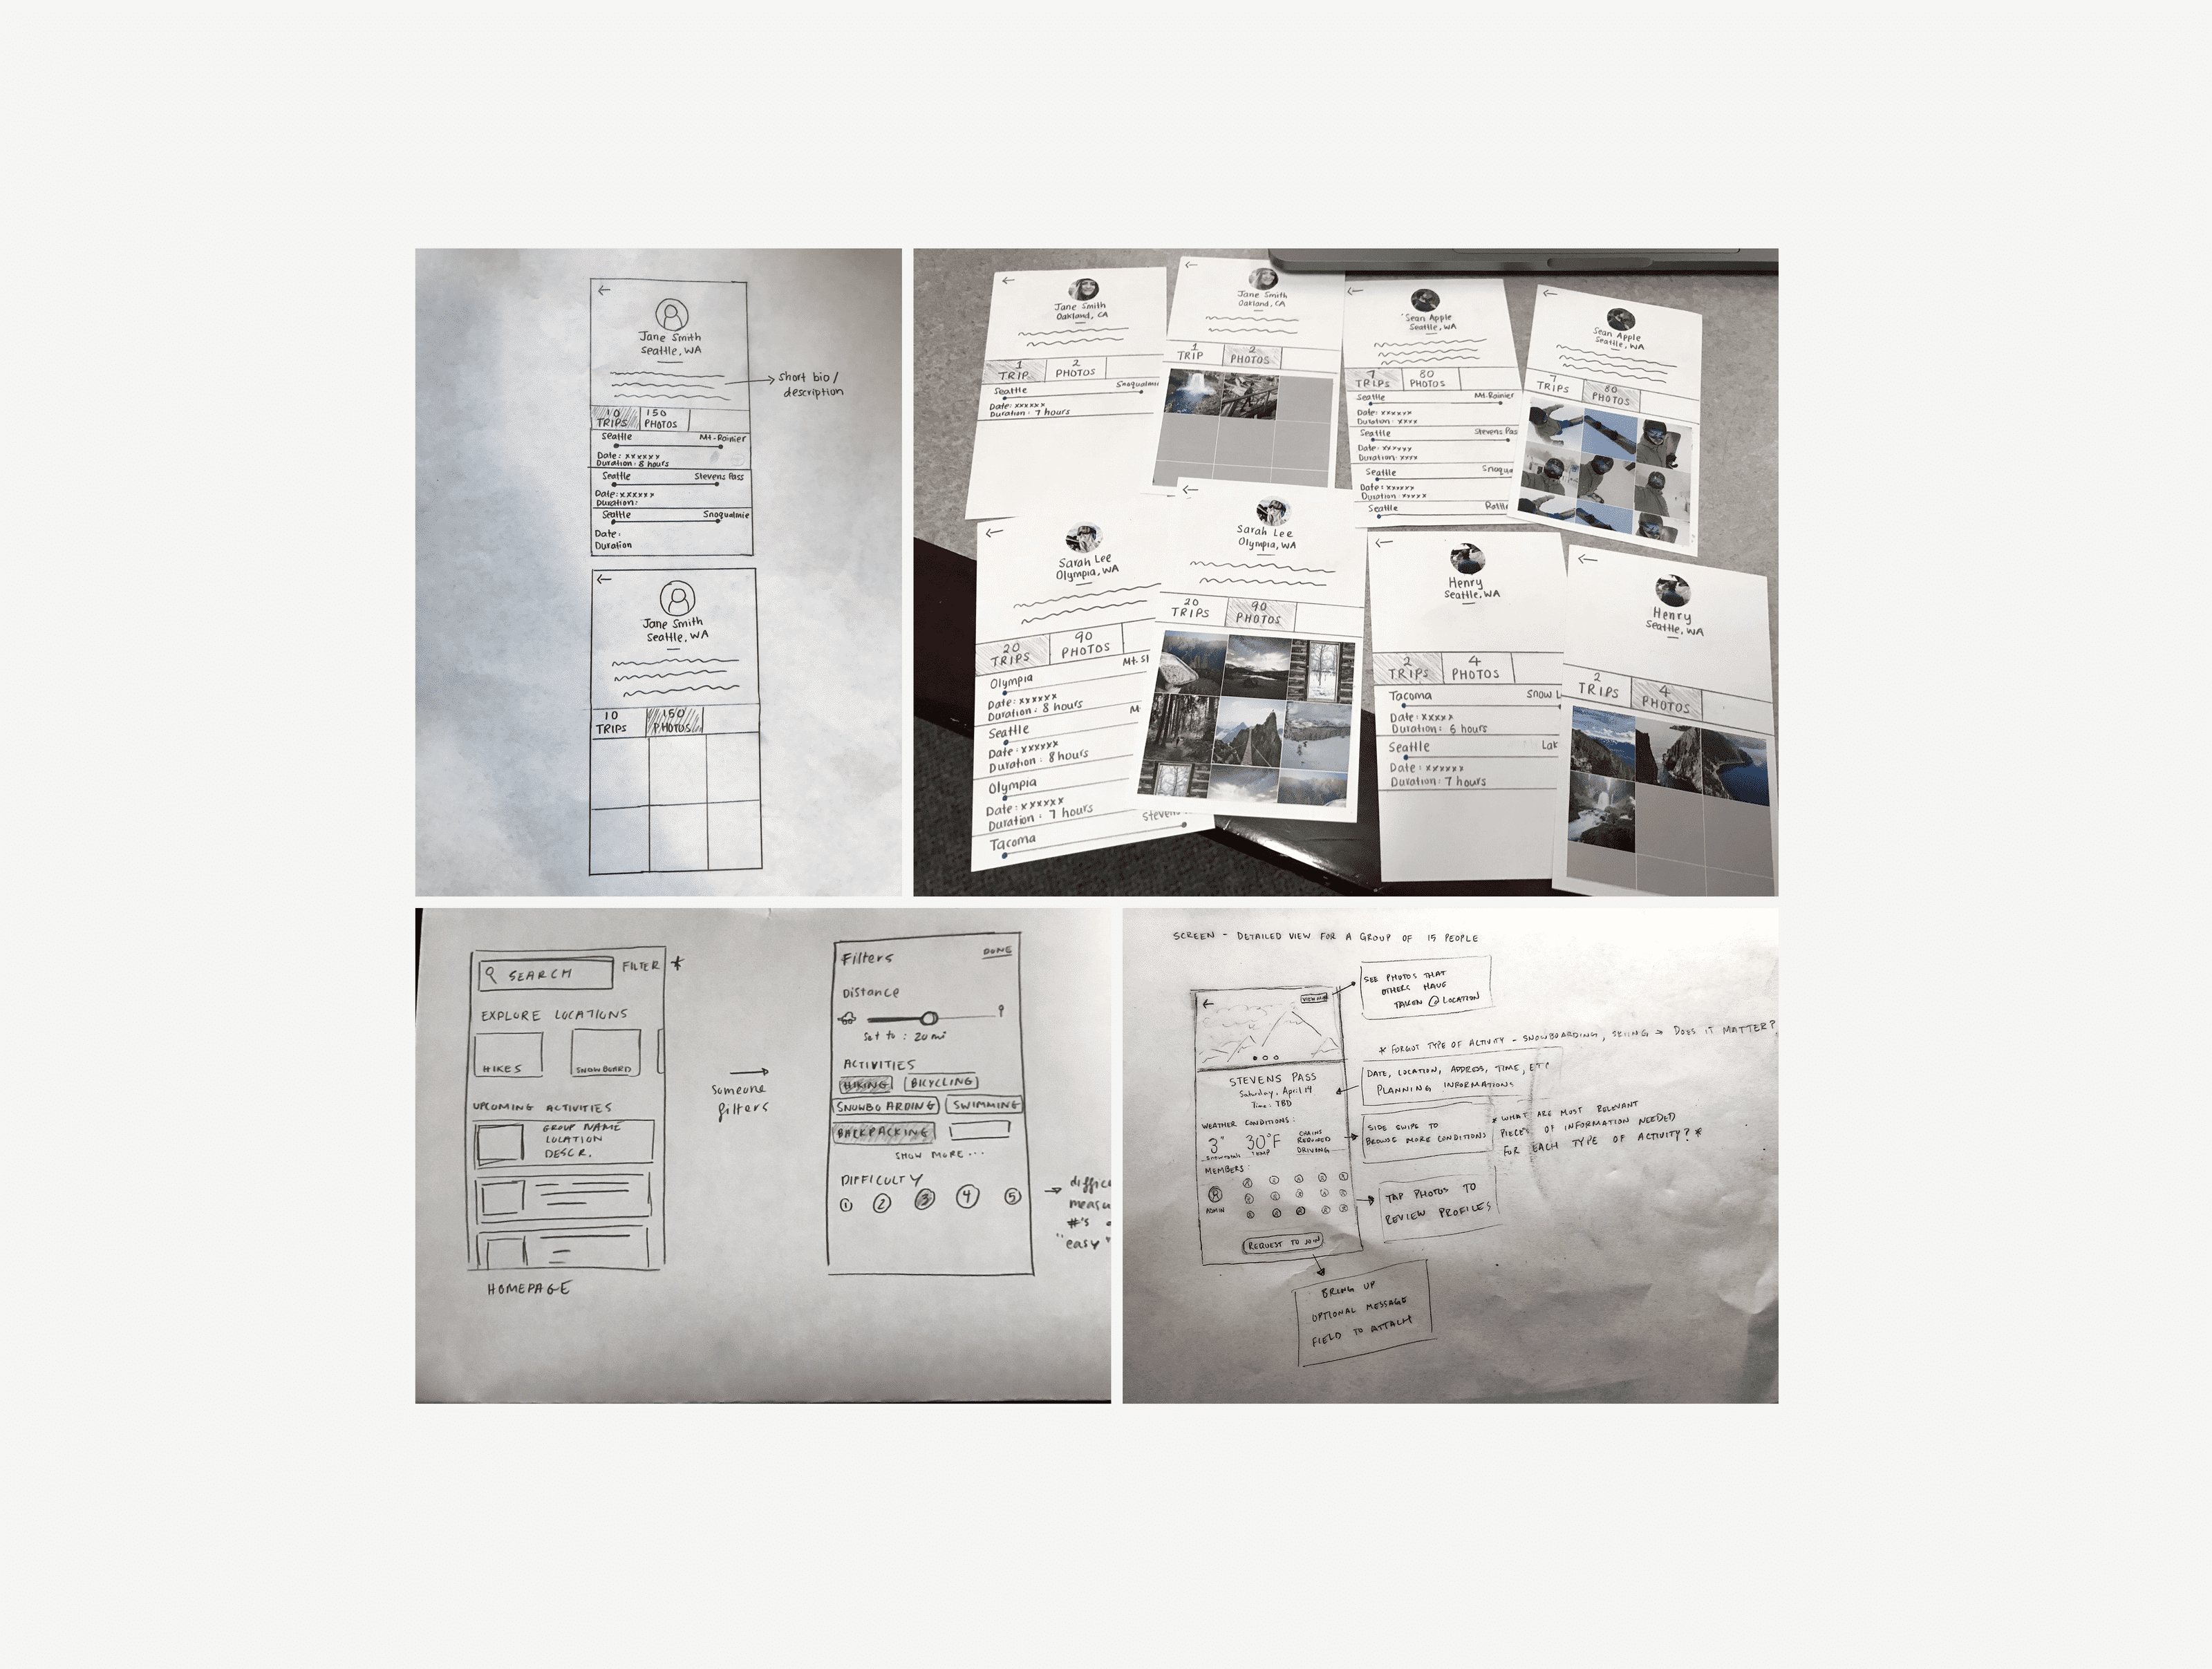 ←
Jane Smith
Seattle, WA
short bio /
description
10 150
TRIPS PHOTOS
Seattle Mt. Rainier
Date: xxxxxx
Duration: 8 hours
Seattle Stevens Pass
Date: xxxxxx
Duration:
Seattle Snoqualmie
Date:
Duration
←
Jane Smith
Seattle, WA
10 150
TRIPS PHOTOS
←
Jane Smith
Oakland, CA
1 2
TRIP PHOTOS
Seattle Snoqualmi
Date: xxxxxx
Duration: 7 hours
←
Jane Smith
Oakland, CA
1 2
TRIP PHOTOS
←
Sean Apple
Seattle, WA
7 80
TRIPS PHOTOS
Seattle Mt. Rainier
Date: xxxxxx
Duration: xxxx
Seattle Stevens Pas
Date: xxxxxx
Duration: xxxx
Seattle Snoqu
Date: xxxxxx
Duration: xxxxx
Seattle
←
Sean Apple
Seattle, WA
7 80
TRIPS PHOTOS
←
Sarah Lee
Olympia, WA
20 90
TRIPS PHOTOS
Olympia Mt. SI
Date: xxxxxx
Duration: 8 hours
Seattle M
Date: xxxxxx
Duration: 8 hours
Olympia
Date: xxxxxx
Duration: 7 hours
Tacoma Steven
←
Sarah Lee
Olympia, WA
20 90
TRIPS PHOTOS
←
Henry
Seattle, WA
2 4
TRIPS PHOTOS
Tacoma Snow L
Date: xxxxx
Duration: 6 hours
Seattle Lak
Date: xxxxxx
Duration: 7 hours
←
Henry
Seattle, WA
2 4
TRIPS PHOTOS
SEARCH FILTER *
EXPLORE LOCATIONS
HIKES SNOWBOARD
UPCOMING ACTIVITIES
GROUP NAME
LOCATION
DESCR.
HOMEPAGE
→
someone
filters
Filters DONE
Distance
Set to : 20 mi
ACTIVITIES
HIKING BICYCLING
SNOWBOARDING SWIMMING
BACKPACKING
SHOW MORE...
DIFFICULTY
1 2 3 4 5
→ diffic
measu
#'s
"easy"
SCREEN - DETAILED VIEW FOR A GROUP OF 15 PEOPLE
←
SEE PHOTOS THAT
OTHERS HAVE
TAKEN @ LOCATION
* FORGOT TYPE OF ACTIVITY - SNOWBOARDING, SKIING → DOES IT MATTER?
STEVENS PASS
Saturday, April 14
Time: TBD
DATE, LOCATION, ADDRESS, TIME, ETC
PLANNING INFORMATIONS
WEATHER CONDITIONS:
3" 30°F CHAINS
REQUIRED
DRIVING
TEMP
SIDE SWIPE TO
BROWSE MORE CONDITIONS
* WHAT ARE MOST RELEVANT
PIECES OF INFORMATION NEEDED
FOR EACH TYPE OF ACTIVITY? *
MEMBERS:
ADMIN
TAP PHOTOS TO
REVIEW PROFILES
REQUEST TO JOIN
BRING UP
OPTIONAL MESSAGE
FIELD TO ATTACH